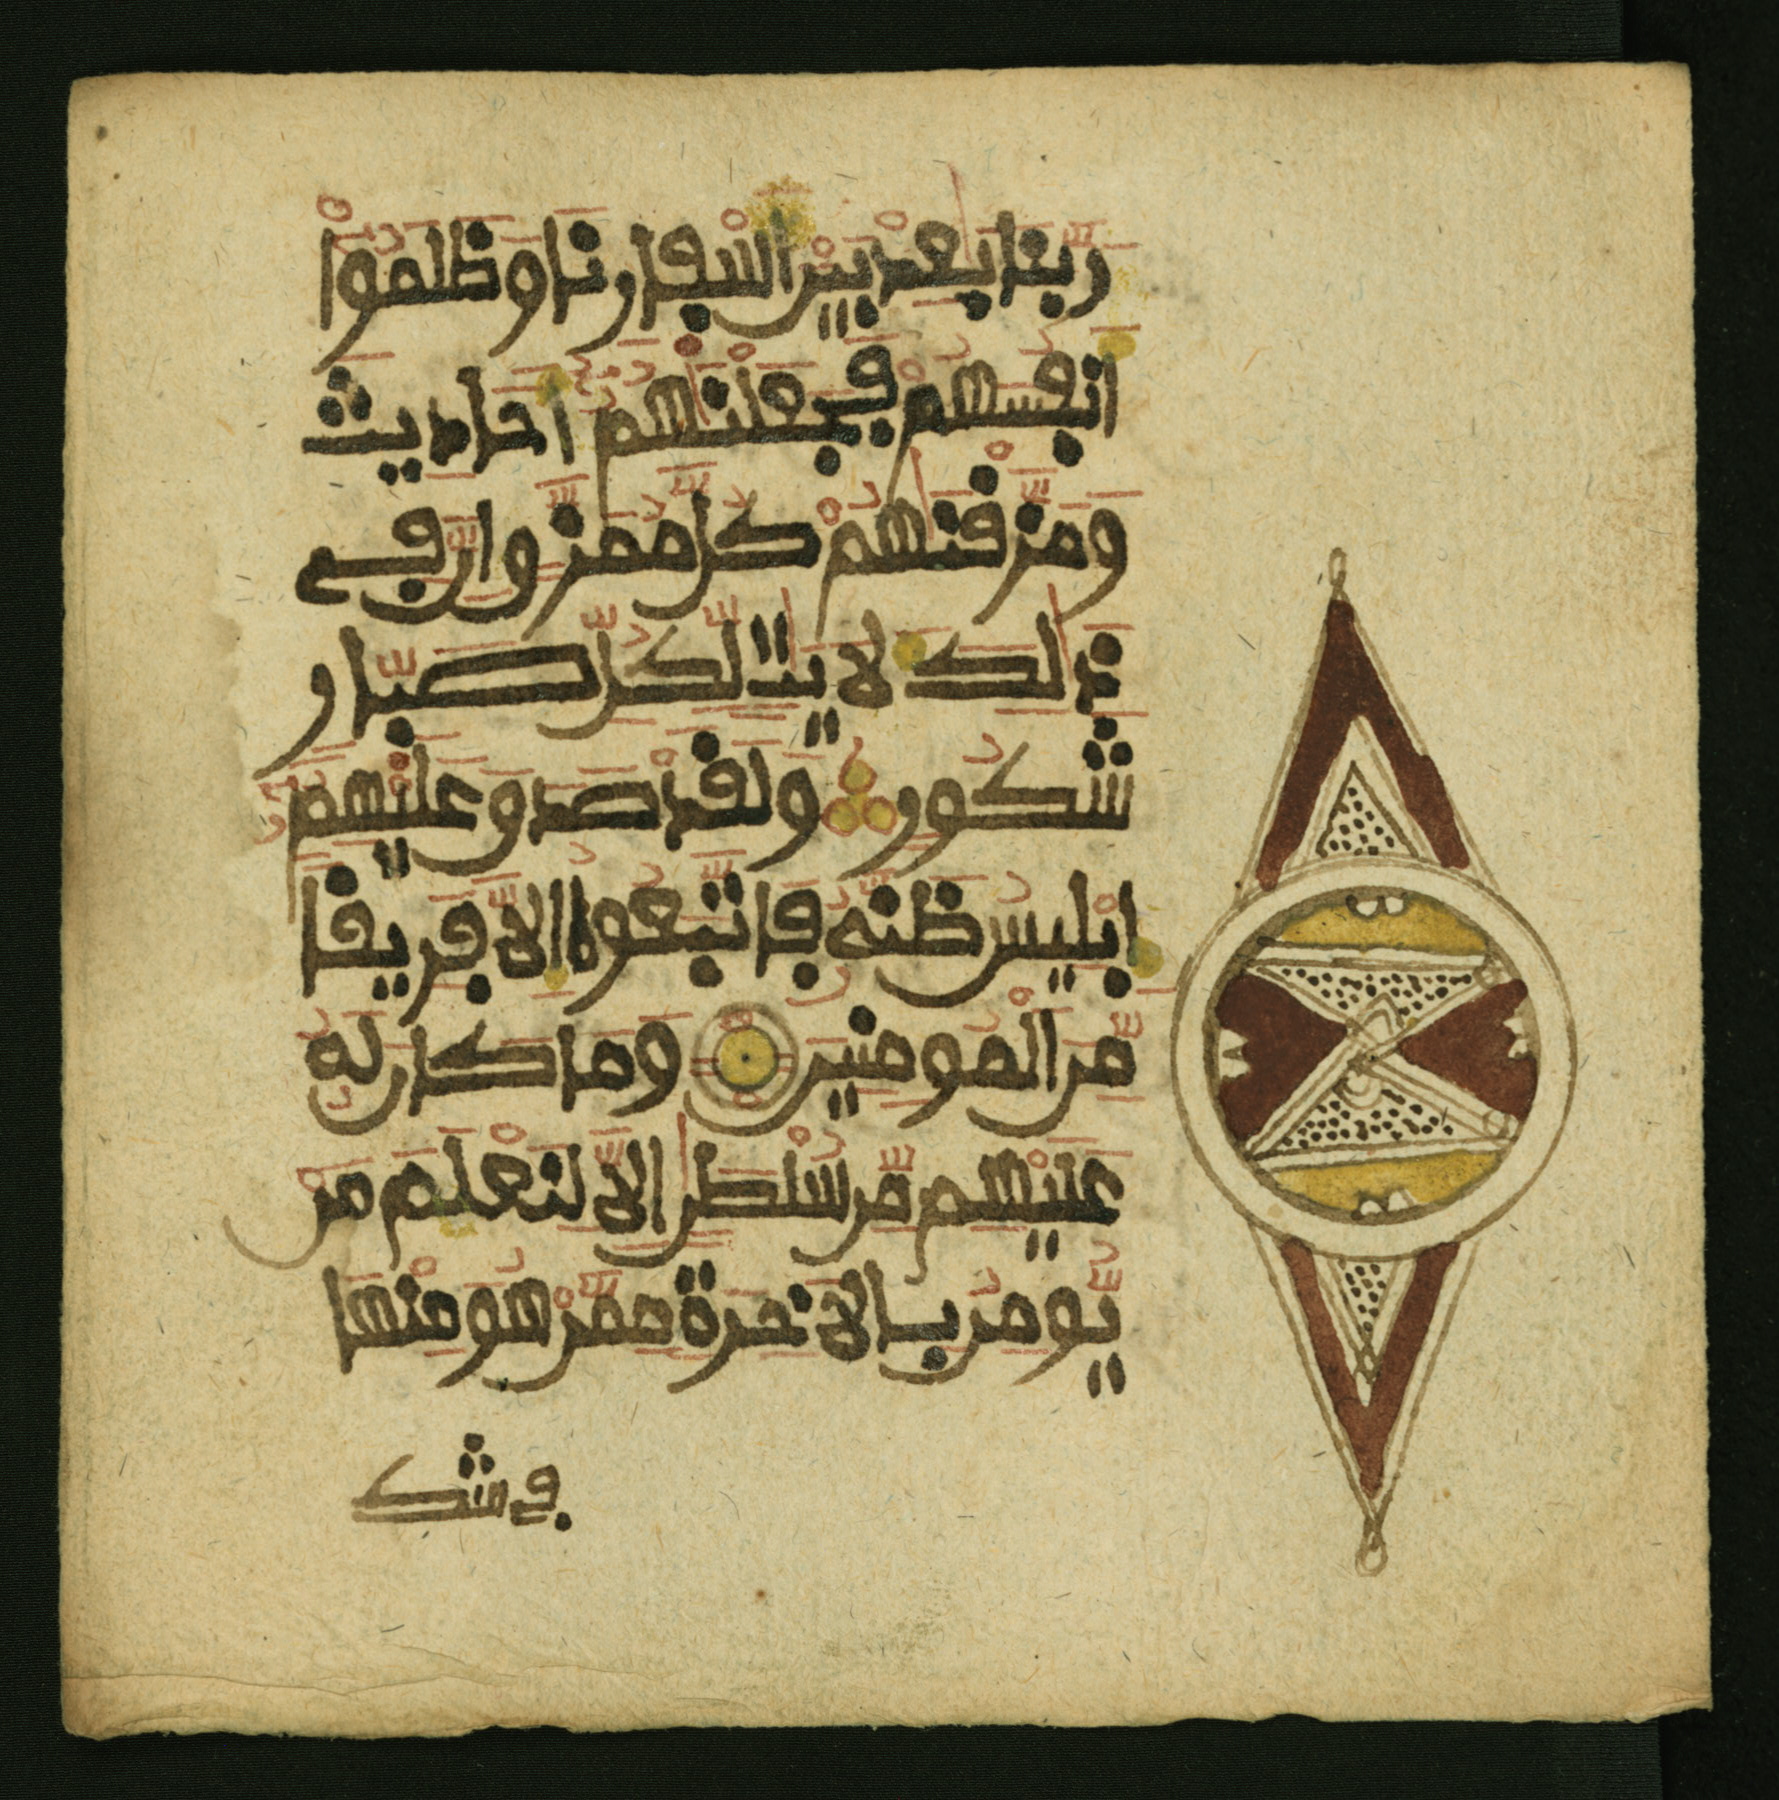 ربنا بعد بين اسفارنا وظلموا
انفسهم فجعلنهم احاديث
ومزقنهم كل ممزق ان في
ذلك لايت لكل صبار
شكور ولقد صدق عليهم
ابليس ظنه فاتبعوه الا فريقا
من المومنين وما كان له
عليهم من سلطن الا لنعلم من
يومن بالاخرة ممن هو منها
في شك